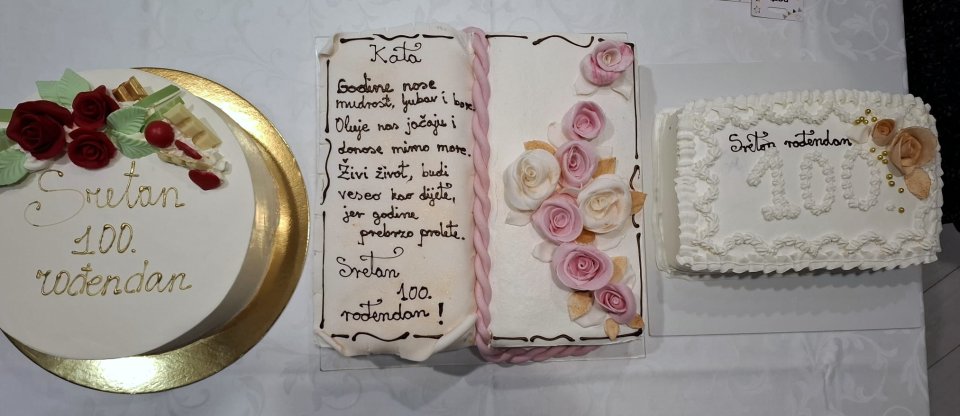 Sretan
100.
rođendan
Kata
Godine nose
mudrost, ljubav i bore.
Oluje nas jačaju i
donose mirno more.
Živi život, budi
veseo kao dijete,
jer godine
prebrzo prolete.
Sretan
100.
rođendan!
Sretan rođendan
100